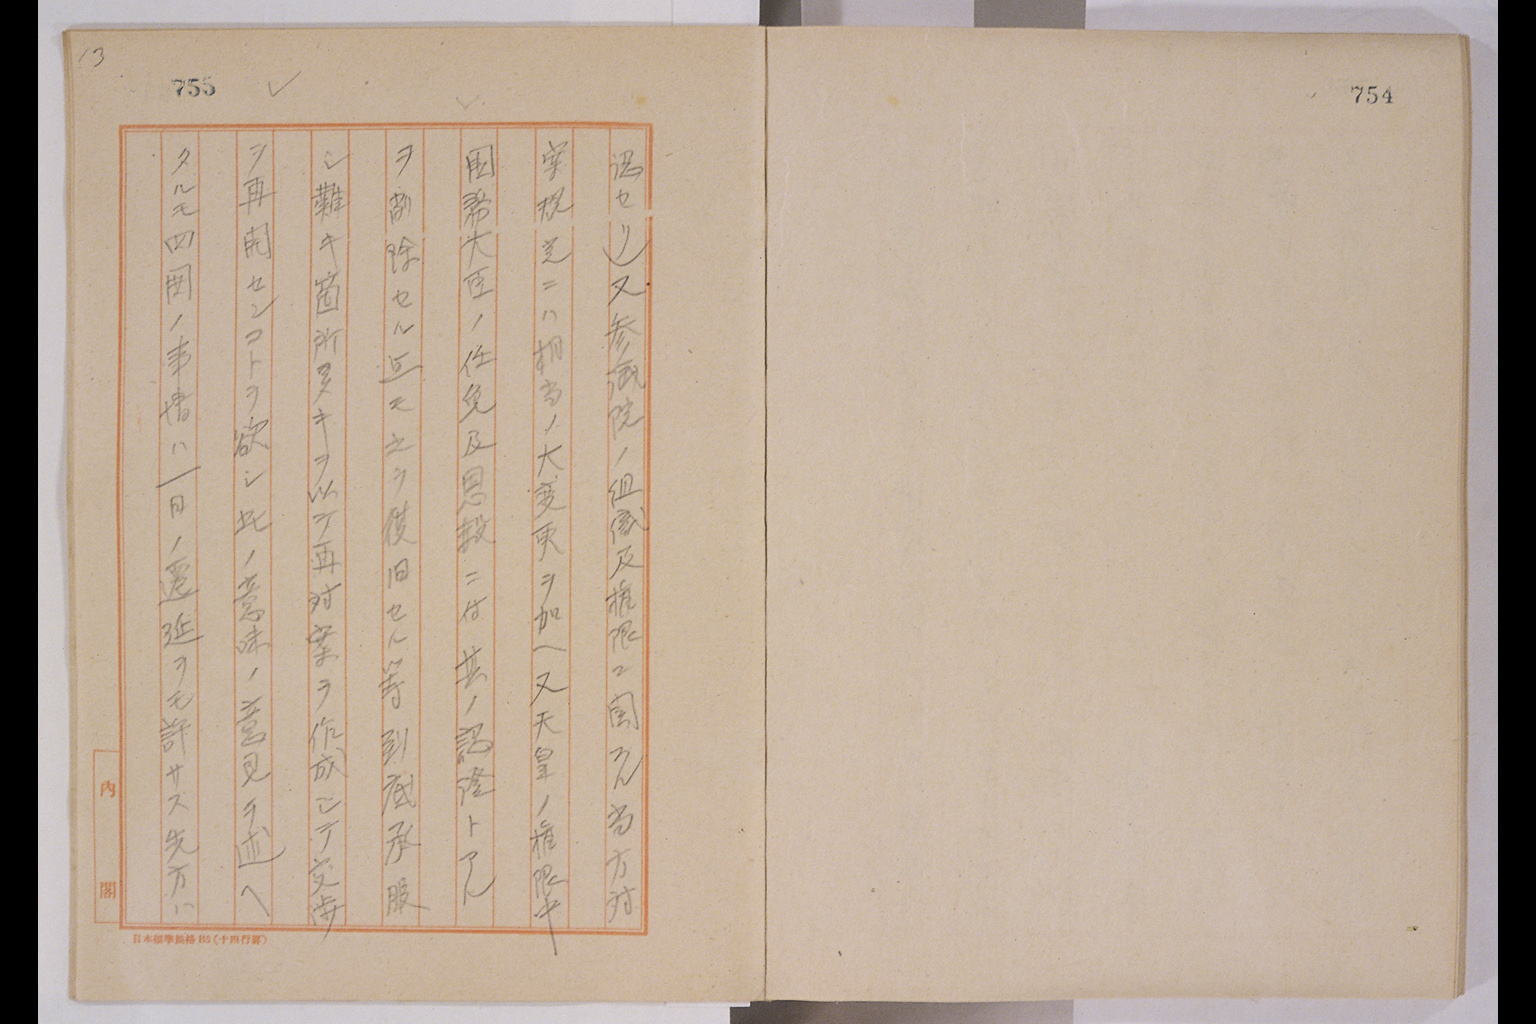 754
13
755
認セリ)又参議院ノ組織及権限ニ関スル当方対
案規定ニハ相当ノ大変更ヲ加ヘ又天皇ノ権限中
国務大臣ノ任免及恩赦ニ付其ノ認証トアル
ヲ削除セル点モ之ヲ復旧セル等到底承服
シ難キ箇所多キヲ以テ再対案ヲ作成シテ交渉
ヲ再開センコトヲ欲シ此ノ意味ノ意見ヲ述ヘ
タルモ四囲ノ事情ハ一日ノ遷延ヲモ許サス先方ハ
内閣
日本標準規格B5(十四行罫)